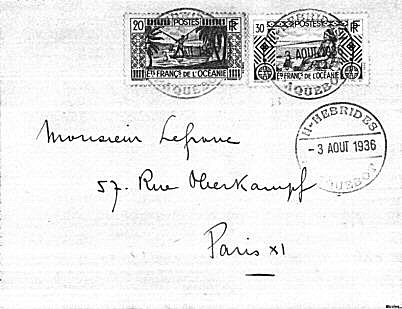 20 POSTES RF
Ets FRANÇs DE L'OCÉANIE
30 POSTES RF
Ets FRANÇs DE L'OCÉANIE
3 AOUT
PAQUEBOT
AQUEBOT
N-HEBRIDES
- 3 AOUT 1936
PAQUEBOT
Monsieur Lefranc
57. Rue Oberkampf
Paris XI